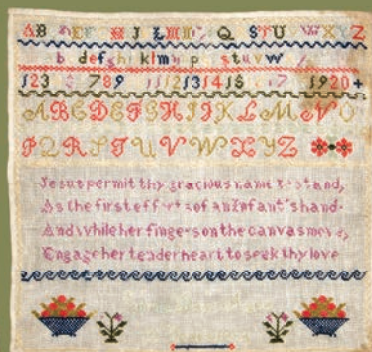 AB EF I L Q STU WXYZ
b defghiklm p stuvw
123 789 11 12 13 14 15 17 1920+
ABCDEFGHIJKLMNO
PQRSTUVWXYZ
Jesus permit thy gracious name to stand,
As the first efforts of an Infant's hand
And while her fingers on the canvas move,
Engage her tender heart to seek thy love